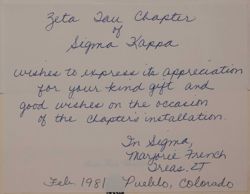 Zeta Tau Chapter
of
Sigma Kappa
wishes to express its appreciation
for your kind gift and
good wishes on the occasion
of the chapter's installation.
In Sigma,
Marjorie French
Treas. ZT
Feb 1981 Pueblo, Colorado